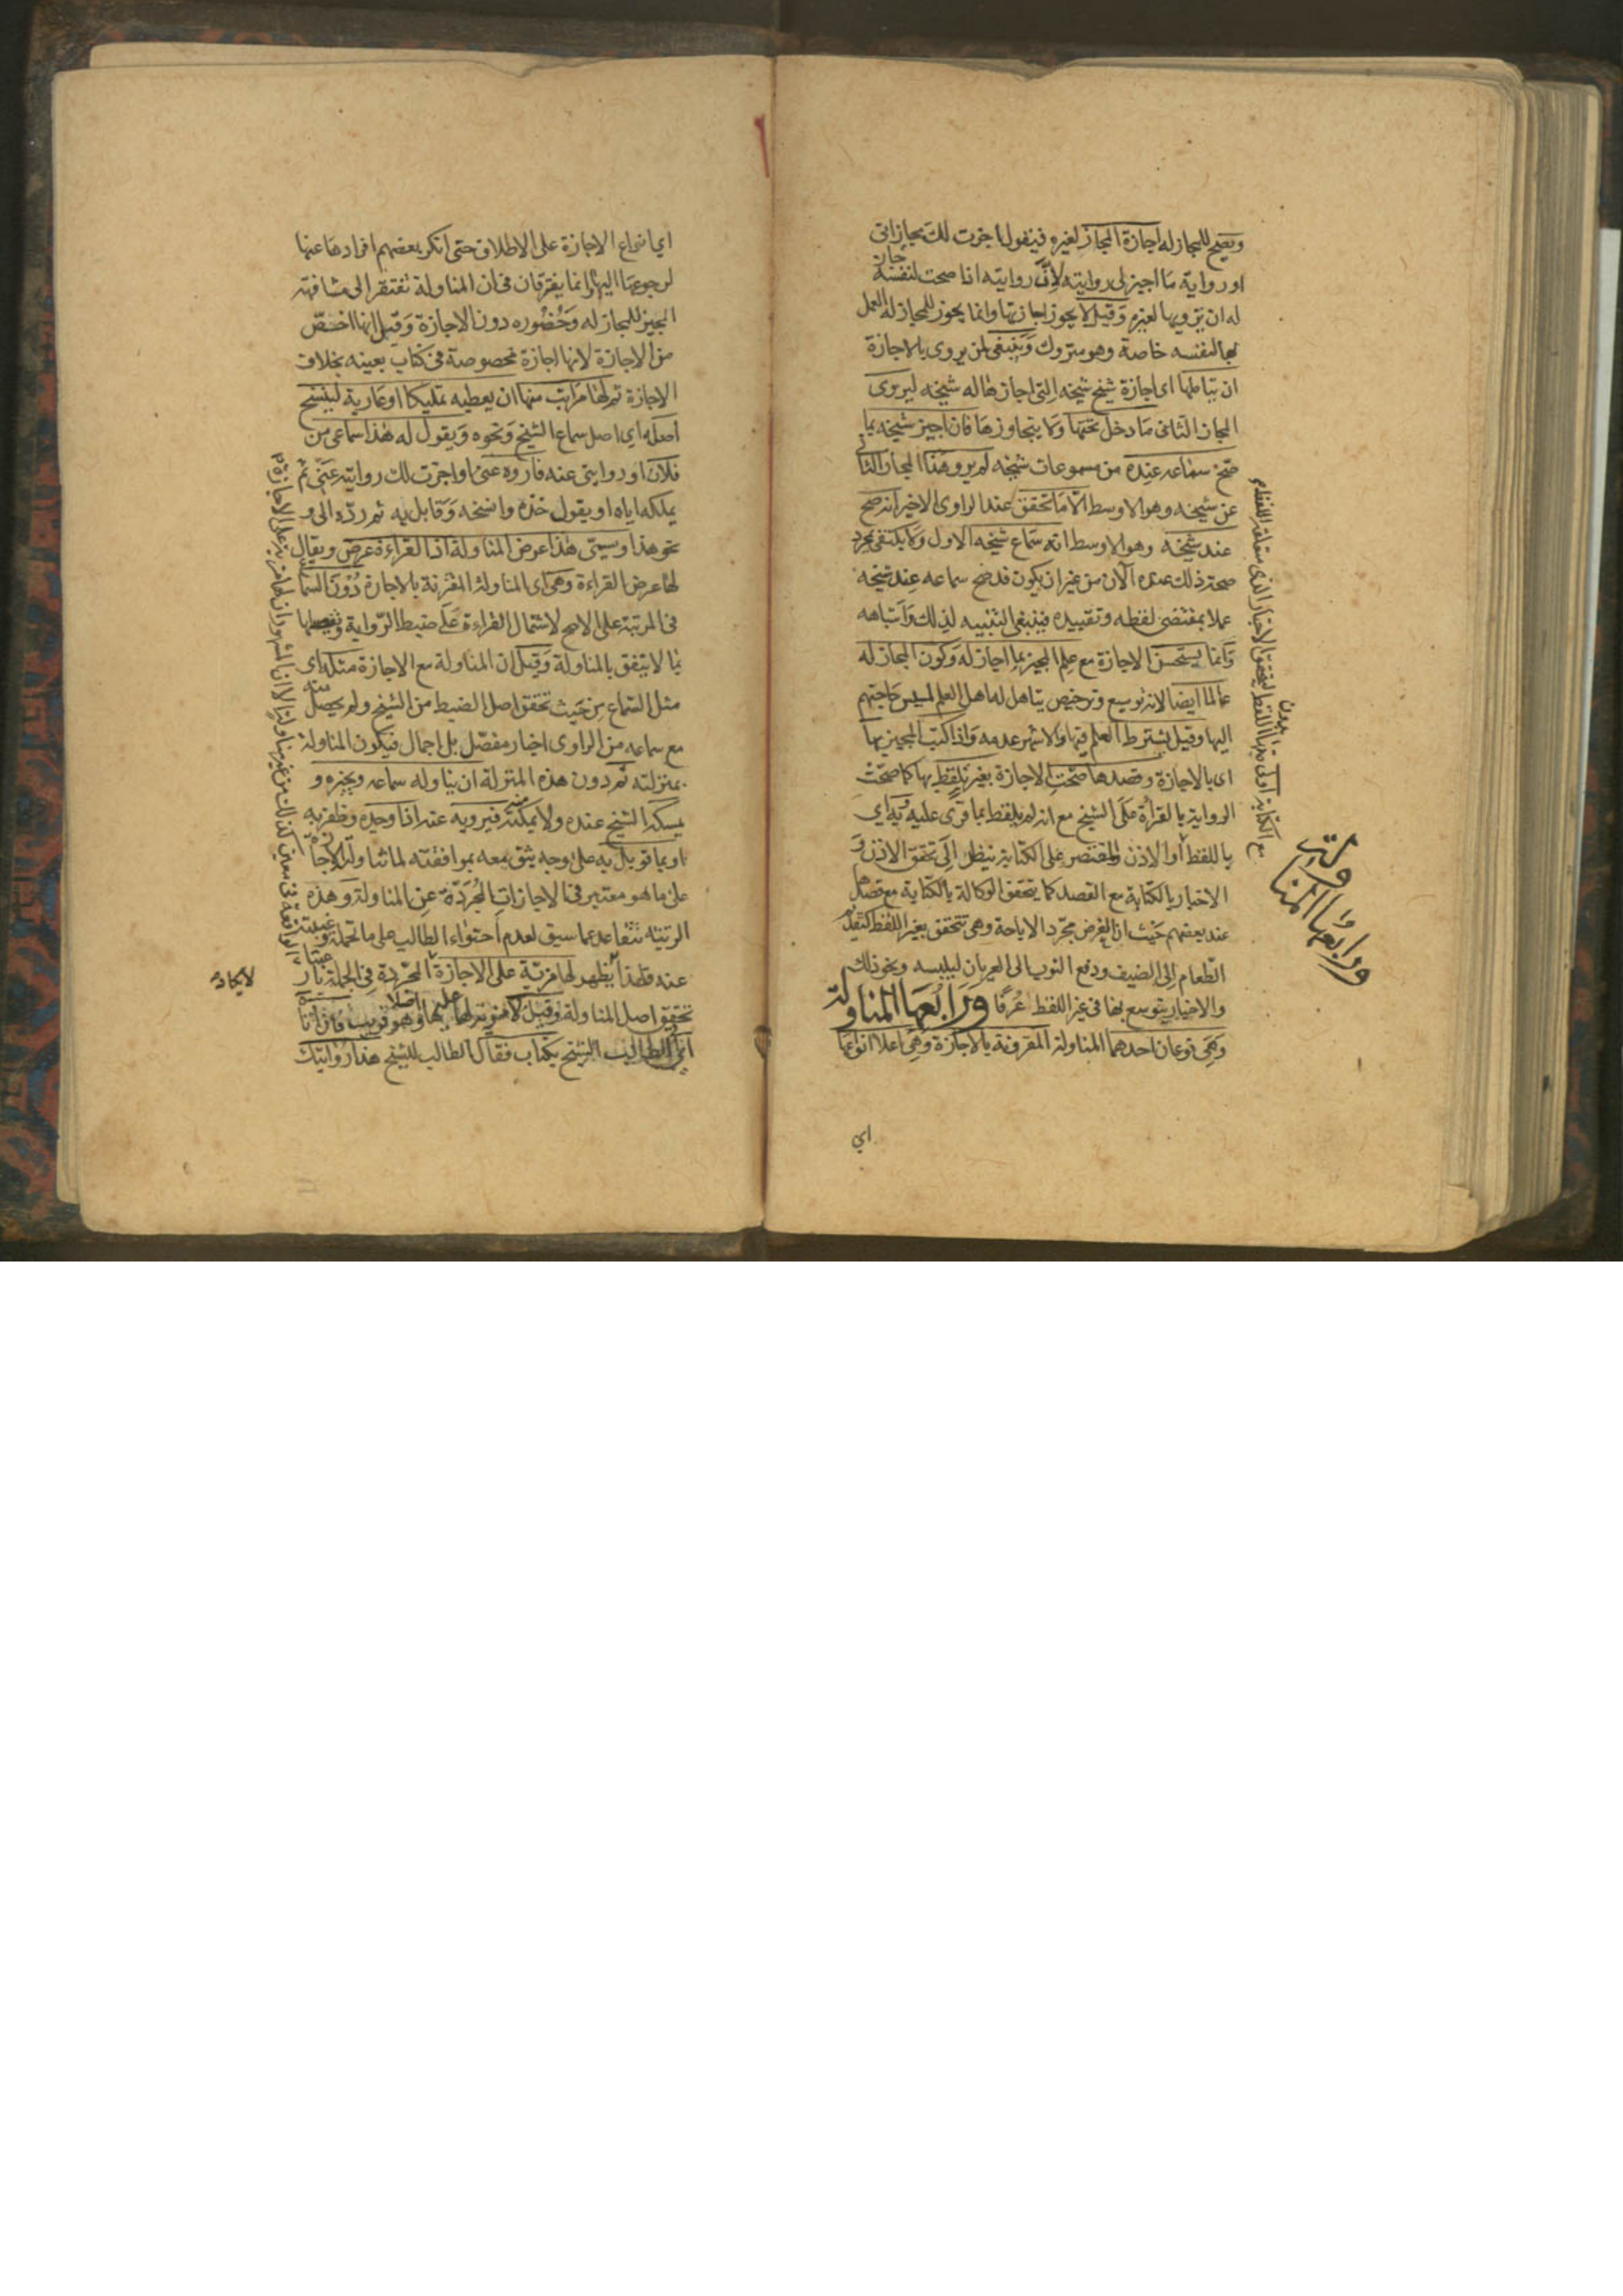 ويصح للمجاز له اجازة المجاز لغيره فيقول اجزت لك مجازاتى
او رواية ما اجيز لى روايته لان روايته اذا صحت لنفسه جاز
له ان يرويها لغيره وقيل لا يجوز اجازتها وانما يجوز للمجاز له العمل
بها لنفسه خاصة وهو متروك وينبغى لمن يروى بالاجازة
ان يتاملها اى اجازة شيخ شيخه التى اجازها له شيخه ليروى
المجاز الثانى ما دخل تحتها ولا يتجاوزها فان اجيز شيخه بما
صح سماعه عنده من مسموعات شيخه لم يرو هذا المجاز الثانى
عن شيخه وهو الاوسط الا ما تحقق عند الراوى الاخير انه صح
عند شيخه وهو الاوسط انه سماع شيخه الاول ولا يكتفى بمجرد
صحة ذلك عنده الآن من غير ان يكون قد صح سماعه عند شيخه
عملا بمقتضى لفظه وتقييده فينبغى التنبيه لذلك واشباهه
وانما يستحسن الاجازة مع علم المجيز بما اجاز له وكون المجاز له
عالما ايضا لانه توسيع وترخيص يتاهل له اهل العلم لمسيس حاجتهم
اليها وقيل يشترط العلم فيها والاشهر عدمه واذا كتب المجيز بها
اى بالاجازة وقصدها صحت الاجازة بغير تلفظ بها كما صحت
الرواية بالقراءة على الشيخ مع انه لم يلفظ بما قرى عليه وبه اى
باللفظ او الاذن والمقتصر على الكتابة ينظر الى تحقق الاذن و
الاخبار بالكتابة مع القصد كما يتحقق الوكالة بالكتابة مع قصدها
عند بعضهم حيث ان الغرض مجرد الاباحة وهى تتحقق بغير اللفظ كتقديم
الطعام الى الضيف ودفع الثوب الى العريان ليلبسه ونحو ذلك
والاخبار يتوسع بها فى غير اللفظ عرفا ورابعها المناولة
وهى نوعان احدهما المناولة المقرونة بالاجازة وهى اعلا انواعها
اي
ورابعها المناولة
اي انواع الاجازة على الاطلاق حتى انكر بعضهم افرادها عنها
لرجوعها اليها وانما يفترقان فى ان المناولة تفتقر الى مشافهة
المجيز للمجاز له وحضوره دون الاجازة وقيل انها اخص
من الاجازة لانها اجازة مخصوصة فى كتاب بعينه بخلاف
الاجازة ثم لها مراتب منها ان يعطيه تمليكا او عارية لينسخ
اصله اي اصل سماع الشيخ ونحوه ويقول له هذا سماعى من
فلان او روايتى عنه فاروه عنى او اجزت لك روايته عنى ثم
يملكه اياه او يقول خذه وانسخه وقابل به ثم رده الى و
نحو هذا ويسمى هذا عرض المناولة اذ القراءة عرض ويقال
لها عرض القراءة وهى اى المناولة المقترنة بالاجازة دون السماع
فى المرتبة على الاصح لاشتمال القراءة على ضبط الرواية وتفصيلها
بما لا يتفق بالمناولة وقيل ان المناولة مع الاجازة مثله اى
مثل السماع من حيث تحقق اصل الضبط من الشيخ ولم يحصل منه
مع سماعه من الراوى اخبار مفصل بل اجمال فيكون المناولة
بمنزلته ثم دون هذه المنزلة ان يناوله سماعه ويجيزه و
يمسكه الشيخ عنده ولا يمكنه منه فيرويه عنه اذا وجده وظفر به
او بما قوبل به على وجه يثق معه بموافقته لما تناولته الاجازة
على ما هو معتبر فى الاجازات المجردة عن المناولة وهذه
الرتبة تتقاعد عما سبق لعدم احتواء الطالب على ما تحمله وغيبته
عنه فلهذا لا يكاد يظهر لها مزية على الاجازة المجردة فى الجملة باعتبار
تحقق اصل المناولة وقيل لا مزية لها عليها اصلا وهو قريب فان اتاه
اى الطالب الشيخ بكتاب فقال الطالب للشيخ هذا روايتك
لا يكاد